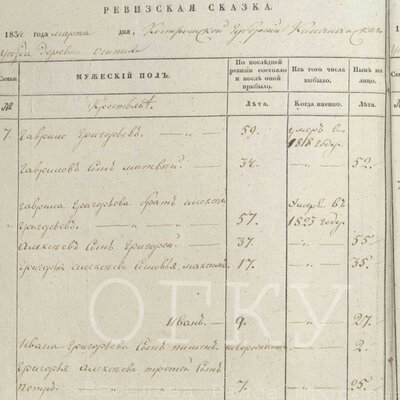 РЕВИЗСКАЯ СКАЗКА.
1834 года марта дня, Костромской Губернии
уезда Деревни
Семьи. МУЖЕСКІЙ ПОЛЪ. По последней ревизіи состояло и после оной прибыло. Изъ того числа выбыло. Ныне на лицо.
№ Лѣта. Когда именно. Лѣта.
Крестьяне
7. Гаврило Григорьевъ. 59. умеръ въ 1818 году.
Гавриловъ Сынъ Матвей. 34. 52.
Гаврила Григорьева братъ Алексей
Григорьевъ. 57. Умеръ въ 1823 году.
Алексеевъ Сынъ Григорей. 37. 55.
Григорья Алексеева Сыновья Максимъ 17. 35.
Иванъ 9. 27.
Ивана Григорьева Сынъ Пименъ новорожденъ 2.
Григорья Алексеева третей Сынъ
Петръ 7. 25.
ОГКУ